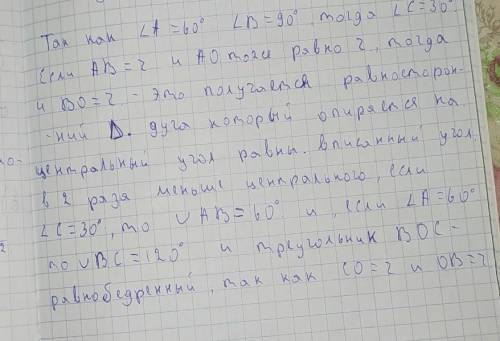 Так как ∠A=60° ∠B=90° тогда ∠C=30°
Если AB=2 и AO тоже равно 2, тогда
и BO=2 - это получается равносторон-
-ний Δ. дуга который опирается на
центральный угол равны. вписанный угол
в 2 раза меньше центрального, если
∠C=30°, то ∪AB=60° и, если ∠A=60°
то ∪BC=120° и треугольник BOC-
равнобедренный, так как CO=2 и OB=2